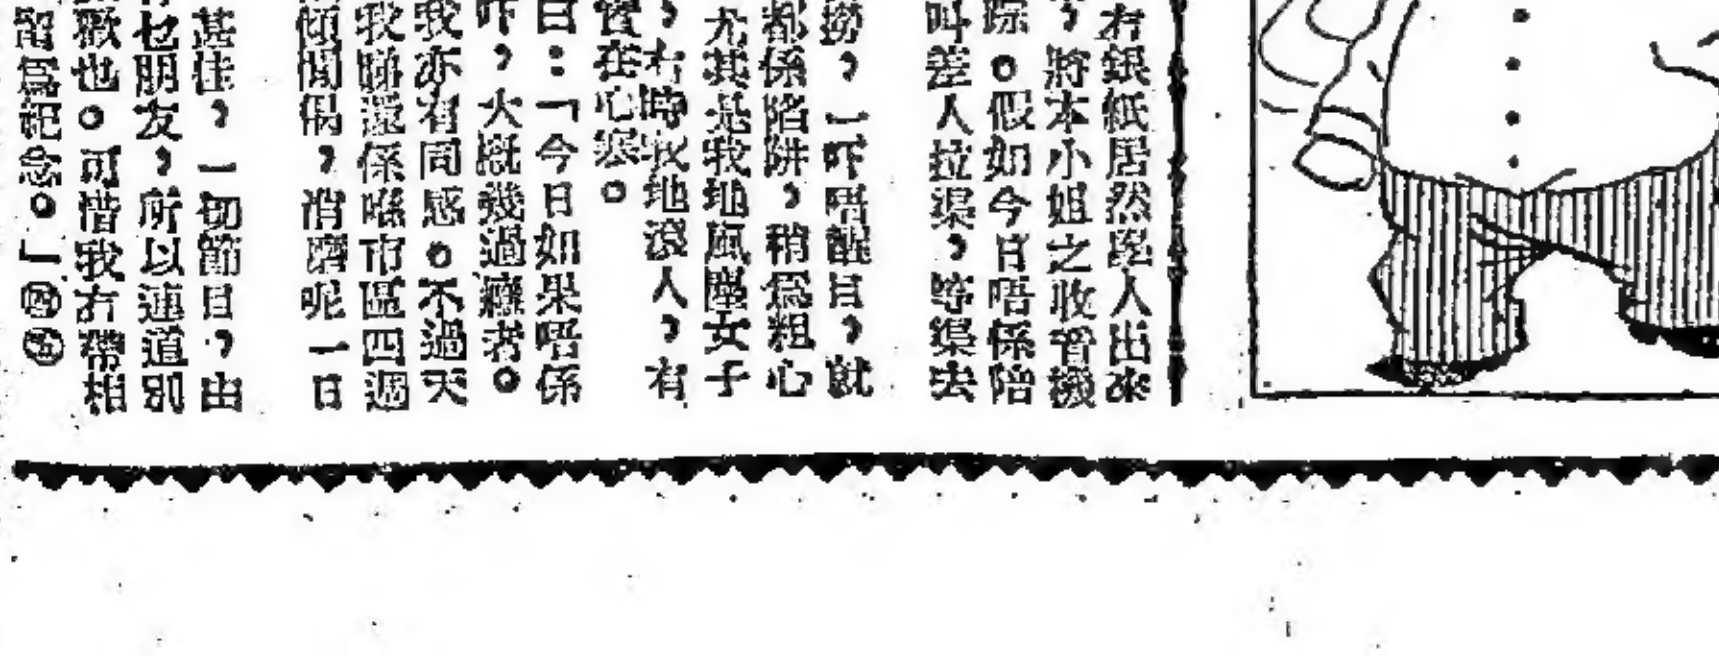 冇銀紙居然與人出來
，將本小姐之收音機
踪。假如今日唔係陪
叫差人拉渠，等渠去
撈，一吓唔醒目，就
都係陷阱，稍爲粗心
尤其是我地風塵女子
，有時收地滾人，有
實在心寒。
曰：「今日如果唔係
吓，大概幾過癮者。
我亦有同感。不過天
我睇還係喺市區四週
傾閒偈，消磨呢一日
甚佳，一切節目，由
乜朋友，所以連道別
歉也。可惜我冇帶相
留爲紀念。」